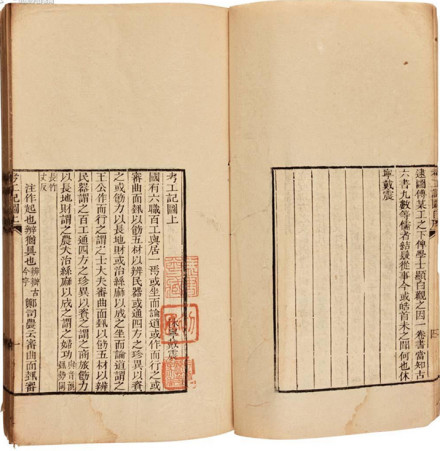 考工記圖
四
圖傳某工之下俾學士顯白觀之因一卷書當知古
六書九數等儒者結髮從事今或皓首未之聞何也休
寧戴震
考工記圖上
休寧戴震
國有六職百工與居一焉或坐而論道或作而行之或
審曲面埶以飭五材以辨民器或通四方之珍異以資
之或飭力以長地財或治絲麻以成之坐而論道謂之
王公作而行之謂之士大夫審曲面埶以飭五材以辨
民器謂之百工通四方之珍異以資之謂之商旅飭力
以長地財謂之農夫治絲麻以成之謂之婦功
長竹
丈反
注作起也辨猶具也辨辦古今字鄭司農云審曲面埶審
考工記圖上
一